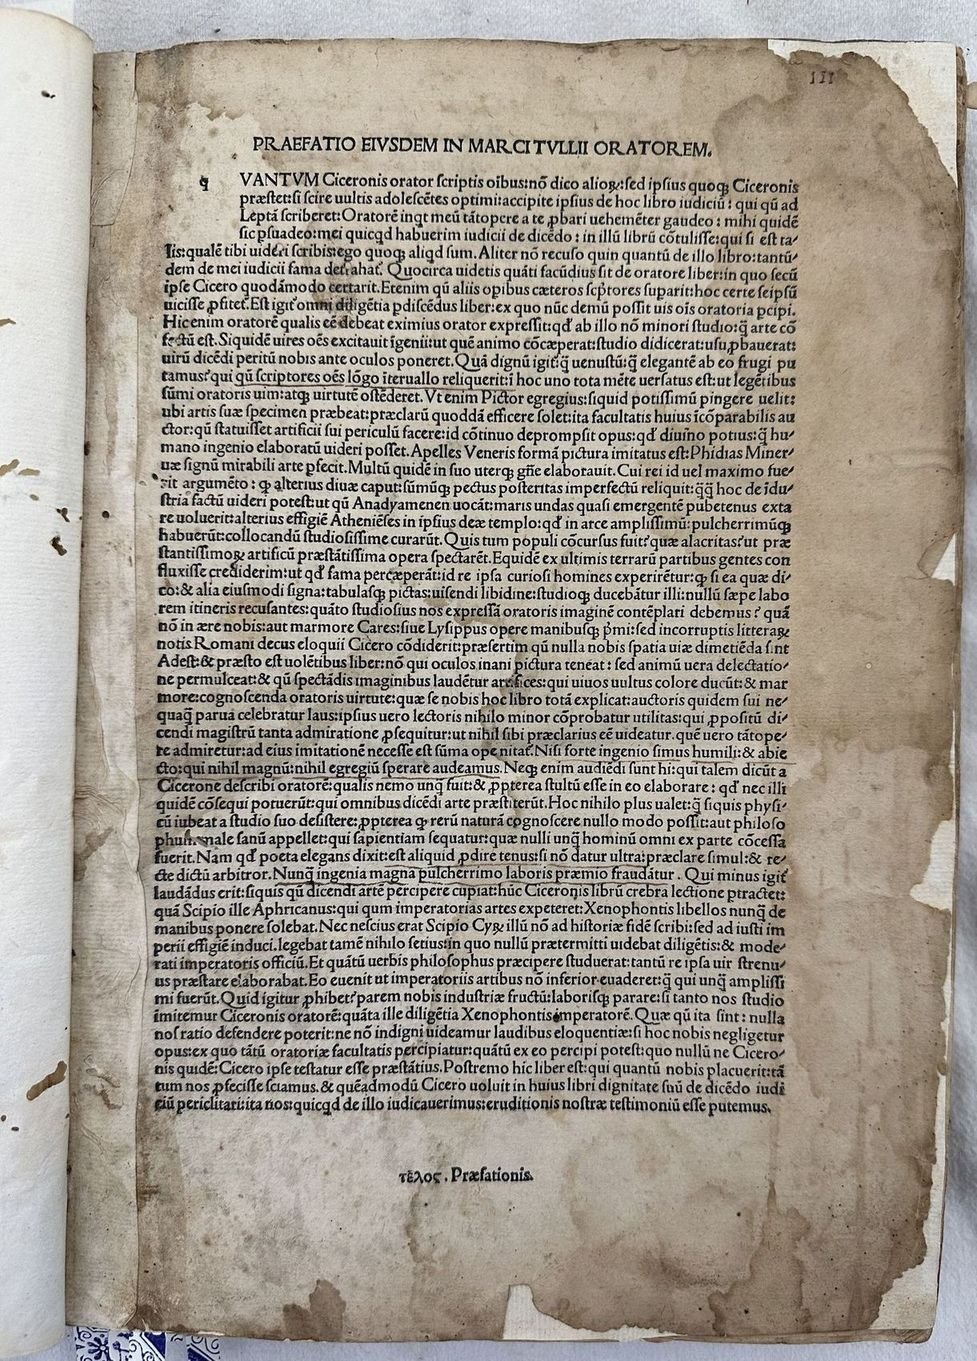 III
PRAEFATIO EIVSDEM IN MARCI TVLLII ORATOREM.
q VANTVM Ciceronis orator scriptis oībus:nō dico alioꝝ:sed ipsius quoqꝫ Ciceronis
præstet:si scire uultis adolescētes optimi:accipite ipsius de hoc libro iudiciū: qui qū ad
Leptā scriberet:Oratorē inqt meū tātopere a te ꝓbari uehemēter gaudeo: mihi quidē
sic ꝑsuadeo:mei quicqd habuerim iudicii de dicēdo: in illū librū cōtulisse:qui si est ta⸗
lis:qualē tibi uideri scribis:ego quoqꝫ aliqd sum. Aliter nō recuso quin quantū de illo libro:tantū⸗
dem de mei iudicii fama detrahat. Quocirca uidetis quāti facūdius sit de oratore liber:in quo secū
ipse Cicero quodāmodo certarit. Etenim qū aliis opibus cæteros scp̄tores suparit:hoc certe seipsū
uicisse ꝓfitet. Est igit omni diligētia pdiscēdus liber:ex quo nūc demū possit uis oīs oratoria pcipi.
Hic enim oratorē qualis eē debeat eximius orator expressit:qd ab illo nō minori studio:q̄ arte cō
fectū est. Siquidē uires oēs excitauit īgenii:ut quē animo cōcæperat:studio didicerat:usu ꝓbauerat:
uirū dicēdi peritū nobis ante oculos poneret. Quā dignū igit:q̄ uenustū:q̄ elegantē ab eo frugi pu
tamus?qui qū scriptores oēs lōgo īteruallo reliquerit:ī hoc uno tota mēte uersatus est:ut legētibus
sūmi oratoris uim:atqꝫ uirtutē ostēderet. Vt enim Pictor egregius:siquid potissimū pingere uelit:
ubi artis suæ specimen præbeat:præclarū quoddā efficere solet:ita facultatis huius īcōparabilis au
ctor:qū statuisset artificii sui periculū facere:id cōtinuo deprompsit opus:qd diuino potius:q̄ hu⸗
mano ingenio elaboratū uideri posset. Apelles Veneris formā pictura imitatus est:Phidias Miner⸗
uæ signū mirabili arte ꝑfecit. Multū quidē in suo uterqꝫ gn̄e elaborauit. Cui rei id uel maximo fue⸗
rit argumēto: qꝫ alterius diuæ caput:sūmūqꝫ pectus posteritas imperfectū reliquit:q̄q̄ hoc de īdu⸗
stria factū uideri potest:ut qū Anadyamenen uocāt:maris undas quasi emergentē pubetenus exta
re uoluerit:alterius effigiē Atheniēses in ipsius deæ templo:qd in arce amplissimū:pulcherrimūqꝫ
habuerūt:collocandū studiosissime curarūt. Quis tum populi cōcursus fuit?quæ alacritas?ut præ
stantissimoꝝ artificū præstātissima opera spectarēt. Equidē ex ultimis terrarū partibus gentes con
fluxisse crediderim:ut qd fama percæperāt:id re ipsa curiosi homines experirētur:qꝫ si ea quæ di⸗
co:& alia eiusmodi signa:tabulasqꝫ pictas:uisendi libidine:studioqꝫ ducebātur illi:nullū sæpe labo
rem itineris recusantes:quāto studiosius nos expressā oratoris imaginē contēplari debemus? quā
nō in ære nobis:aut marmore Cares:siue Lysippus opere manibusqꝫ pmi:sed incorruptis litteraꝝ
notis Romani decus eloquii Cicero cōdiderit:præsertim qū nulla nobis spatia uiæ dimetiēda sint
Adest:& præsto est uolētibus liber:nō qui oculos inani pictura teneat: sed animū uera delectatio⸗
ne permulceat:& qū spectādis imaginibus laudētur artifices:qui uiuos uultus colore ducūt:& mar
more:cognoscenda oratoris uirtute:quæ se nobis hoc libro totā explicat:auctoris quidem sui ne⸗
quaq̄ parua celebratur laus:ipsius uero lectoris nihilo minor cōprobatur utilitas:qui ꝓpositū di⸗
cendi magistrū tanta admiratione ꝓsequitur:ut nihil sibi præclarius eē uideatur. quē uero tātope⸗
re admiretur:ad eius imitationē necesse est sūma ope nitat. Nisi forte ingenio simus humili:& abie
cto:qui nihil magnū:nihil egregiū sperare audeamus. Neqꝫ enim audiēdi sunt hi:qui talem dicūt a
Cicerone describi oratorē:qualis nemo unq̄ fuit:& ꝓpterea stultū esse in eo elaborare: qd nec illi
quidē cōsequi potuerūt:qui omnibus dicēdi arte præstiterūt. Hoc nihilo plus ualet:q̄ siquis physi⸗
cū iubeat a studio suo desistere:ꝓpterea qꝫ rerū naturā cognoscere nullo modo possit:aut philoso
phum male sanū appellet:qui sapientiam sequatur:quæ nulli unq̄ hominū omni ex parte cōcessa
fuerit. Nam qd poeta elegans dixit:est aliquid ꝓdire tenus:si nō datur ultra:præclare simul:& re⸗
cte dictū arbitror. Nunq̄ ingenia magna pulcherrimo laboris præmio fraudātur. Qui minus igit
laudādus erit:siquis qū dicendi artē percipere cupiat:hūc Ciceronis librū crebra lectione ptractet:
quā Scipio ille Aphricanus:qui qum imperatorias artes expeteret:Xenophontis libellos nunq̄ de
manibus ponere solebat. Nec nescius erat Scipio Cyꝝ illū nō ad historiæ fidē scribi:sed ad iusti im
perii effigiē induci. legebat tamē nihilo setius:in quo nullū prætermitti uidebat diligētis:& mode⸗
rati imperatoris officiū. Et quātū uerbis philosophus præcipere studuerat:tantū re ipsa uir strenu⸗
us præstare elaborabat. Eo euenit ut imperatoriis artibus nō inferior euaderet:q̄ qui unq̄ amplissi
mi fuerūt. Quid igitur ꝓhibet?parem nobis industriæ fructū:laborisqꝫ parare:si tanto nos studio
imitemur Ciceronis oratorē:quāta ille diligētia Xenophontis imperatorē. Quæ qū ita sint: nulla
nos ratio defendere poterit:ne nō indigni uideamur laudibus eloquentiæ:si hoc nobis negligetur
opus:ex quo tātū oratoriæ facultatis percipiatur:quātū ex eo percipi potest:quo nullū ne Cicero⸗
nis quidē:Cicero ipse testatur esse præstātius. Postremo hic liber est:qui quantū nobis placuerit:tā
tum nos ꝓfecisse sciamus. & quēadmodū Cicero uoluit in huius libri dignitate suū de dicēdo iudi
ciū periclitari:ita nos:quicqd de illo iudicauerimus:eruditionis nostræ testimoniū esse putemus.
τέλος. Præfationis.